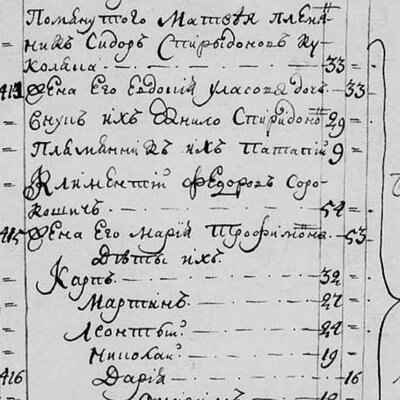 Помянутого Матвѣя племя=
никъ Сидоръ Спиридоновъ Ку
колина 33
413 Жена Его Евдокїя Уласова дочь 33
Внукъ ихъ Данило Спиридонов 29
Племянникъ ихъ Патапїй 9
Климентїй Федоровъ Соро
кошичъ 54
415 Жена Его Марїя Трофимовна 53
Дѣты ихъ
Карпъ 32
Мартинъ 27
Леонтїй 24
Николай 19
416 Дарїя 16